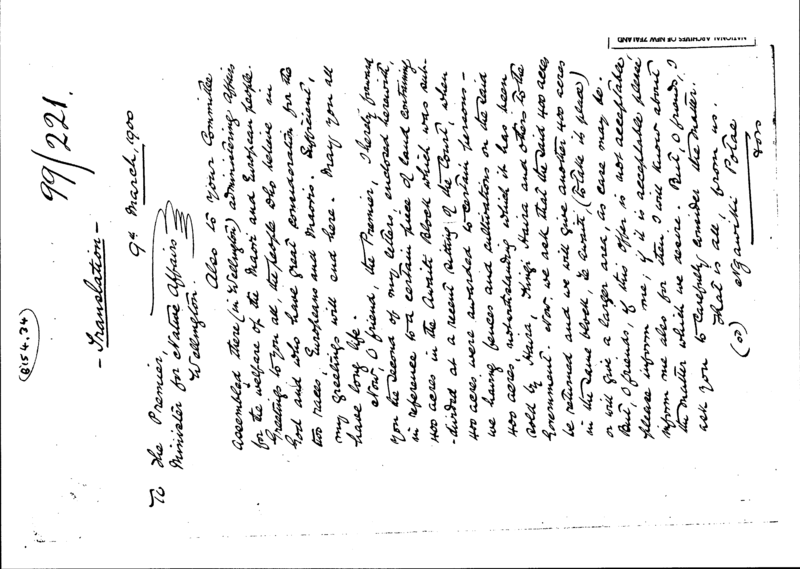 NATIONAL ARCHIVES OF NEW ZEALAND
99/221.
(8154.34)
- Translation -
9th March, 1900
To The Premier,
Minister for Native Affairs
Wellington.
Also to Your Committee
assembled there (in Wellington) administering affairs
for the welfare of the Maori and European people.
Greetings to you all, the people who believe in
God and who have great consideration for the
two races, Europeans and Maoris. Sufficient,
my greetings will end here. May you all
have long life.
Now, O friend, the Premier, I hereby forward
you the second of my letters, enclosed herewith,
in reference to a certain piece of land containing
400 acres in the Awaiti Block which was sub-
-divided at a recent sitting of the Court, when
400 acres were awarded to certain persons -
we having fences and cultivations on the said
400 acres, notwithstanding which it has been
sold by Haira, Kingi Haira and others to the
Government. Now we ask that the said 400 acres
be returned and we will give another 400 acres
in the same block, ie Awaiti (to take its place)
or will give a larger area, as case may be.
But, O friends, if this offer is not acceptable,
please inform me; if it is acceptable please
inform me also for then I will know about
the matter which we desire. But, O friends, I
ask you to carefully consider the matter.
That is all, from us.
Ngawiki Potae